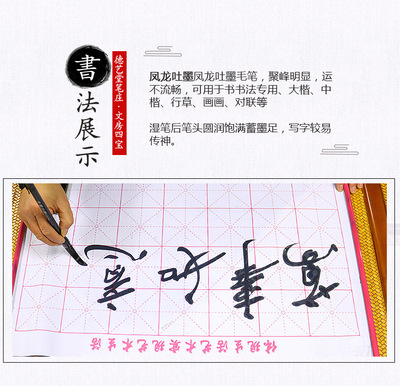 書法展示
德艺堂笔庄·文房四宝
凤龙吐墨凤龙吐墨毛笔，聚峰明显，运
不流畅，可用于书书法专用、大楷、中
楷、行草、画画、对联等
湿笔后笔头圆润饱满蓄墨足，写字较易
传神。
萬事如意
体现生活艺术实现艺术生活